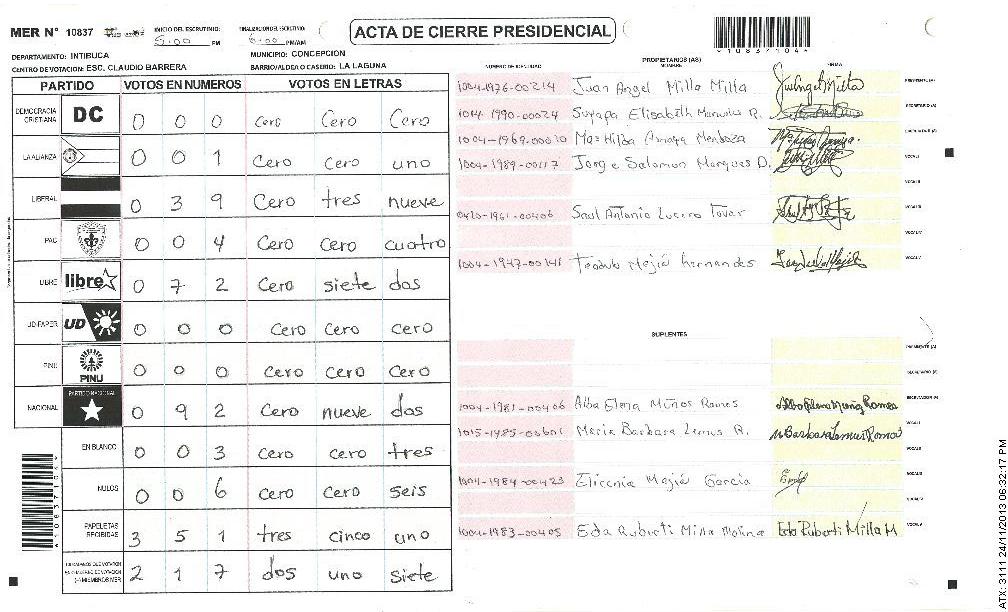 MER N° 10837 INICIO DEL ESCRUTINIO: 5:00 PM FINALIZACION DEL ESCRUTINIO: 6:00 PM/AM
ACTA DE CIERRE PRESIDENCIAL
DEPARTAMENTO: INTIBUCA MUNICIPIO: CONCEPCION
CENTRO DE VOTACION: ESC. CLAUDIO BARRERA BARRIO/ALDEA O CASERIO: LA LAGUNA
PARTIDO VOTOS EN NUMEROS VOTOS EN LETRAS
DEMOCRACIA CRISTIANA DC 0 0 0 cero Cero Cero
LA ALIANZA 0 0 1 Cero cero uno
LIBERAL 0 3 9 Cero tres nueve
PAC 0 0 4 Cero Cero cuatro
LIBRE libre 0 7 2 Cero siete dos
UD-FAPER UD 0 0 0 Cero Cero cero
PINU PINU 0 0 0 Cero Cero Cero
NACIONAL PARTIDO NACIONAL 0 9 2 Cero nueve dos
EN BLANCO 0 0 3 cero cero tres
NULOS 0 0 6 cero Cero seis
PAPELETAS RECIBIDAS 3 5 1 tres cinco uno
2 1 7 dos uno siete
PROPIETARIOS (AS)
NUMERO DE IDENTIDAD NOMBRE FIRMA
1004-1976-00214 Juan Angel Milla Milla PRESIDENTE (A)
1014-1990-00024 Suyapa Elisabeth R. SECRETARIO (A)
1004-1969-00020 Ma= Hilda Amaya Mendoza ESCRUTADOR (A)
1004-1989-00117 Jorge Salomon Marques D. VOCAL I
VOCAL II
0420-1961-00406 Saul Antonio Lucero Tovar VOCAL III
VOCAL IV
1004-1947-00141 Teodulo Mejia hernandes VOCAL V
SUPLENTES
PRESIDENTE (A)
SECRETARIO (A)
1004-1981-00406 Alba Elena Muños Ramos ESCRUTADOR (A)
1015-1985-00601 Maria Barbara Lemus R. VOCAL I
VOCAL II
1004-1984-00423 Elicenia Mejia Garcia VOCAL III
VOCAL IV
1004-1983-00405 Eda Ruberti Milla Molina Eda Ruberti Milla M VOCAL V
ATX: 3111 24/11/2013 06:32:17 PM